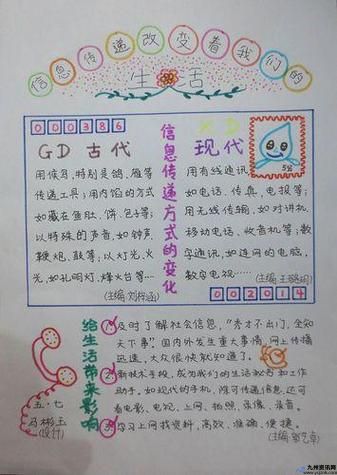 信息传递改变着我们的
生活
000386
GD 古代
用候马，特别是鸽、雁等
传递工具；用内馅的方式
如藏在鱼肚、饼、包子等；
以特殊的声音，如钟声、
鞭炮、鼓等；以灯光、火
光，如孔明灯、烽火台等…
(主编
信息传递方式的变化
XD
现代
5分
用有线通讯，
如电话、传真、电报等；
用无线传输，如对讲机、
移动电话、收音机等；数
字通讯，如连网的电脑，
数字电视……
(主编 王璐玥)
002014
给生活带来影响
①及时了解社会信息，“秀才不出门，全知
天下事”国内外发生重大事情，网上传播
迅速，大众很快就知道了。
②新技术手段，成为我们的生活秘书和工作
助手。如现代的手机，除可传递信息，还可
看电影、电视、上网、拍照、录像、录音。
③学习上网找资料，高效、准确、便捷。
(主编
五·七
马彬玉
(设计)
九州资讯网